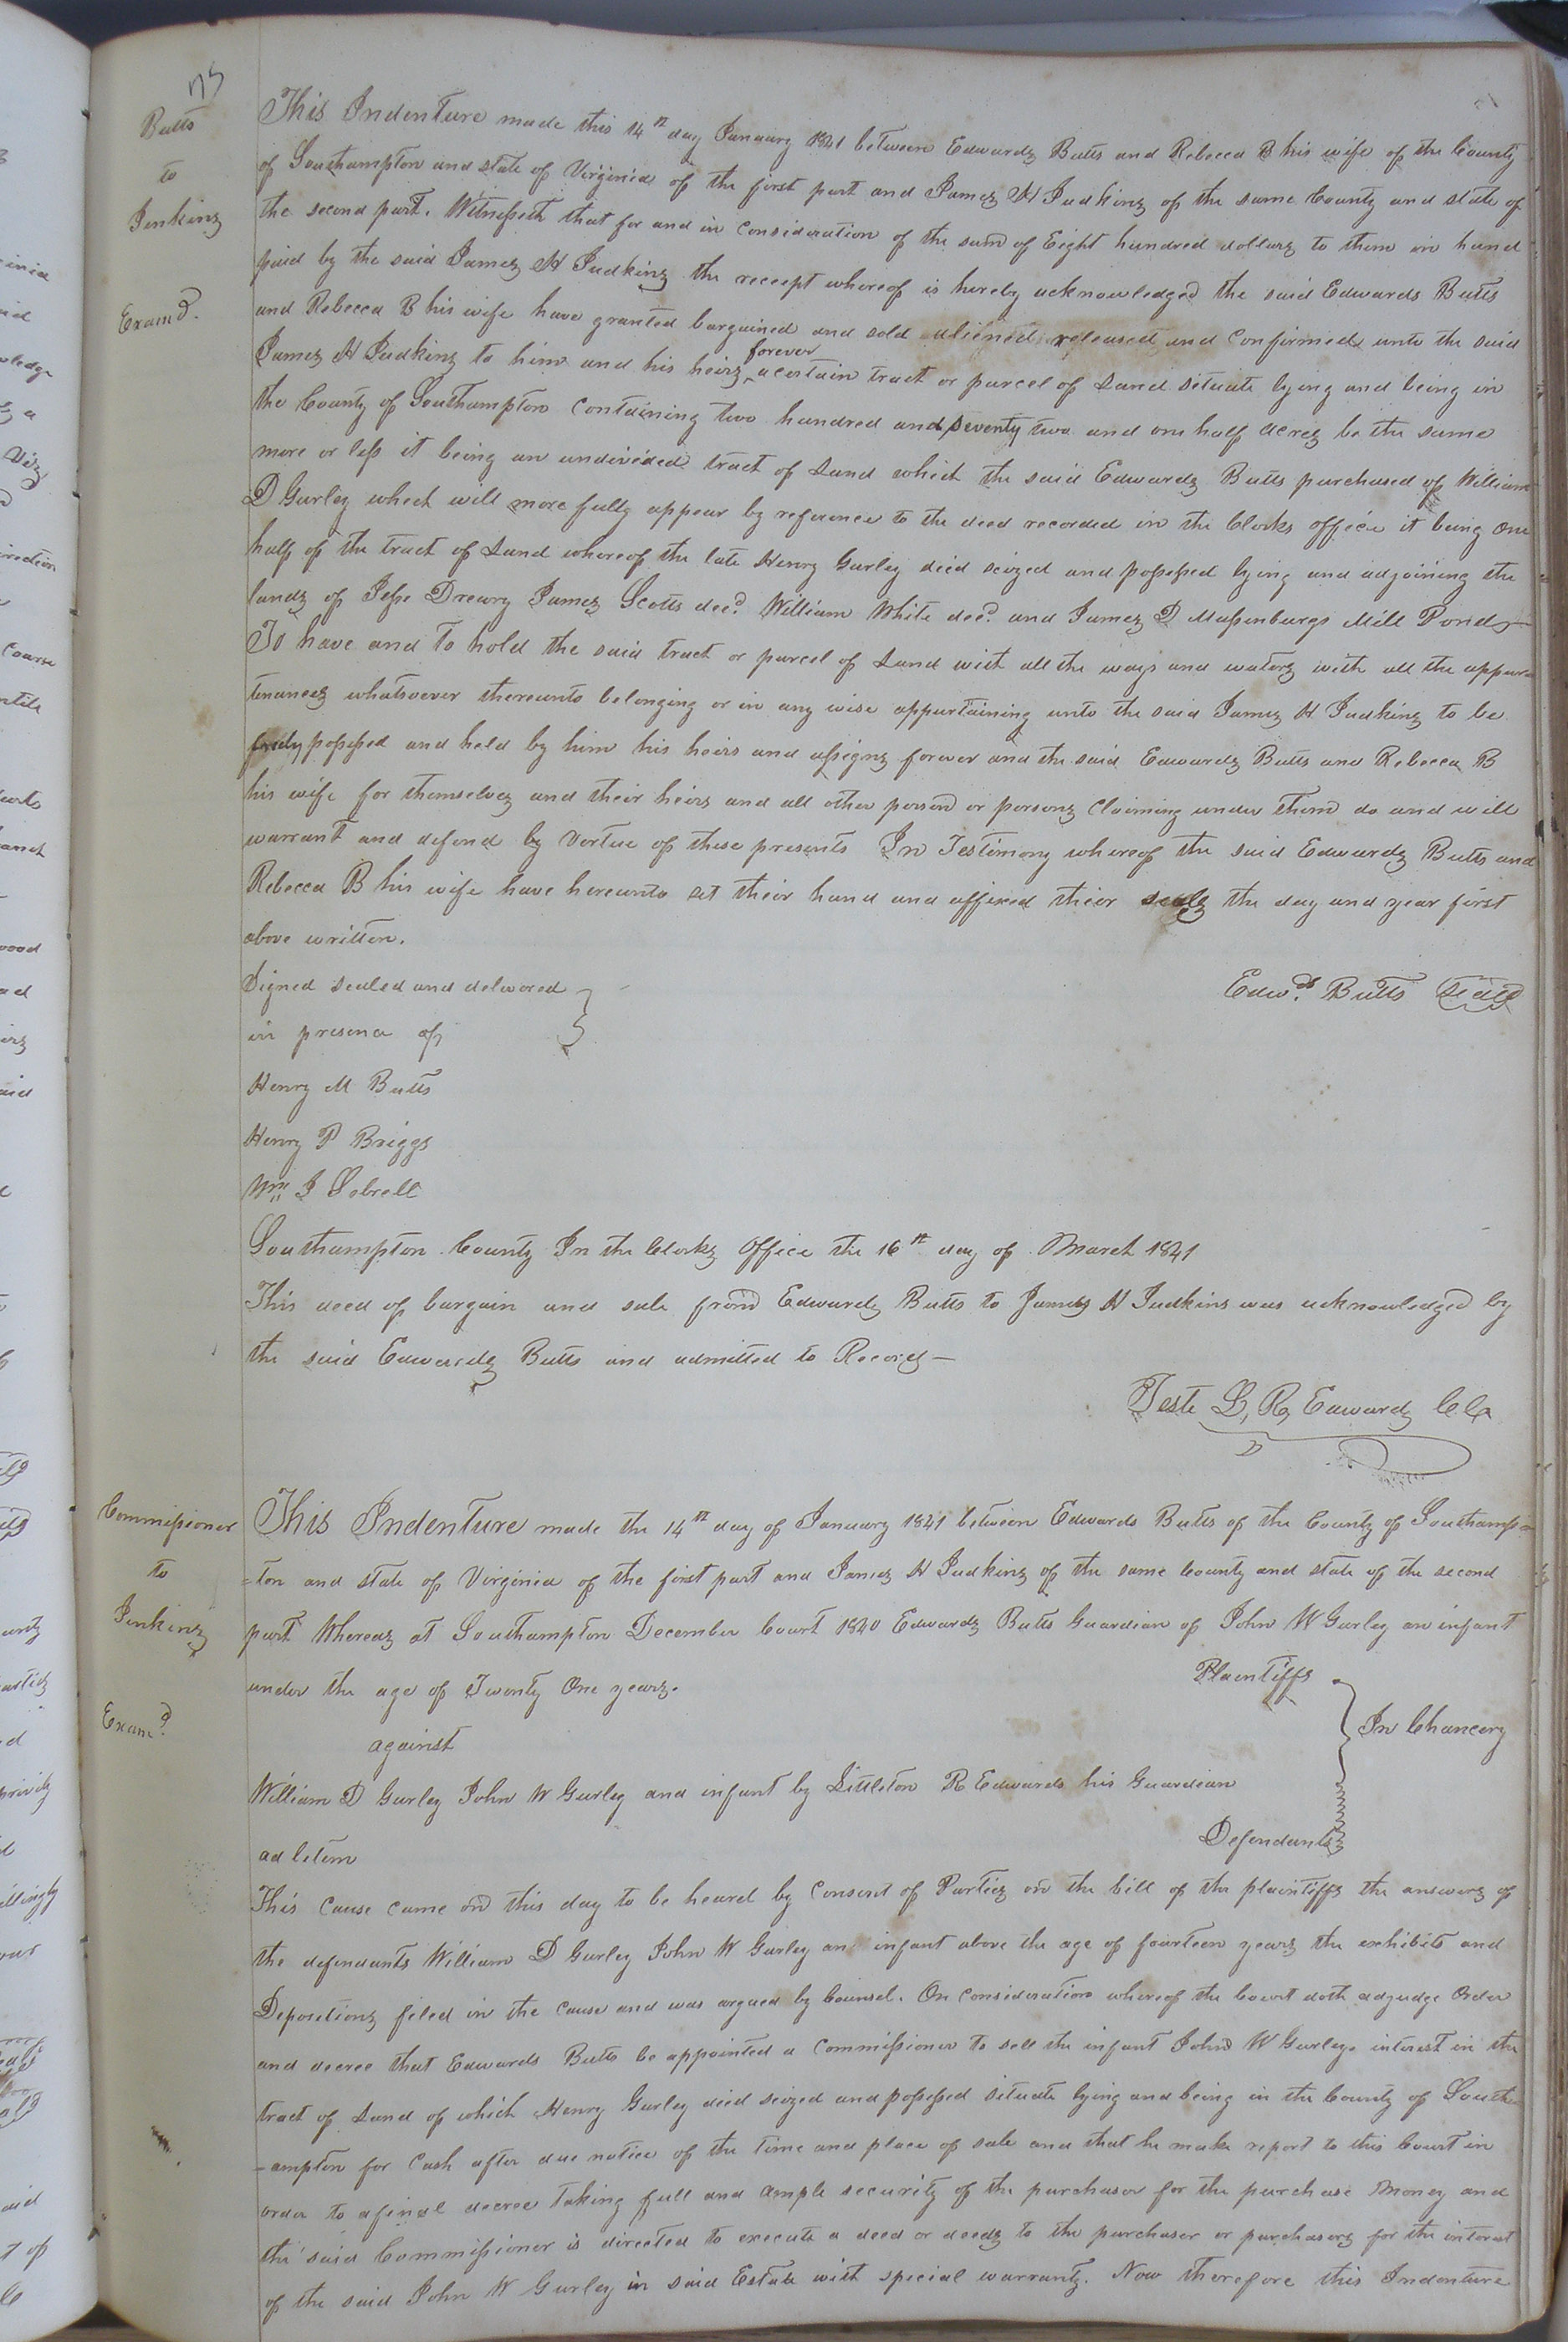 175
Butts
to
Jenkins
Examd.
This Indenture made this 14th day January 1841 between Edwards Butts and Rebecca B his wife of the County
of Southampton and state of Virginia of the first part and James H Judkins of the same County and state of
the second part. Witnesseth that for and in consideration of the sum of Eight hundred dollars to them in hand
paid by the said James H Judkins the receept whereof is hereby acknowledged the said Edwards Butts
and Rebecca B his wife have granted bargained and sold aliened released and confirmed unto the said
James H Judkins to him and his heirs forever a certain tract or parcel of Land situate lying and being in
the County of Southampton containing two hundred and seventy two and one half acres be the same
more or less it being an undivided tract of Land which the said Edwards Butts purchased of William
D Gurley which will more fully appear by reference to the deed recorded in the Clerks office it being one
half of the tract of Land whereof the late Henry Gurley died seized and possessed lying and adjoining the
lands of Jesse Drewry James Scotts decd. William White decd. and James D Massenburgs Mill Pond —
To have and To hold the said tract or parcel of Land with all the ways and waters with all the appur
tenances whatsoever thereunto belonging or in any wise appurtaining unto the said James H Judkins to be
freely possessed and held by him his heirs and assigns forever and the said Edwards Butts and Rebecca B
his wife for themselves and their heirs and all other person or persons claiming under them do and will
warrant and defend by vertue of these presents In Testimony whereof the said Edwards Butts and
Rebecca B his wife have hereunto set their hand and affixed their seals the day and year first
above written.
Signed sealed and delivered
Edwds. Butts Seal
in presence of
Henry M Butts
Henry P Briggs
Wm J Sebrell
Southampton County In the Clerks Office the 16th day of March 1841
This deed of bargain and sale from Edwards Butts to James H Judkins was acknowledged by
the said Edwards Butts and admitted to Record —
Teste L, R, Edwards CC
Commissioner
to
Jenkins
Examd.
This Indenture made the 14th day of January 1841 between Edwards Butts of the County of Southamp
=ton and state of Virginia of the first part and James H Judkins of the same County and state of the second
part Whereas at Southampton December Court 1840 Edwards Butts Guardian of John W Gurley an infant
under the age of Twenty One years.
Plaintiffs
against
In Chancery
William D Gurley John W Gurley and infant by Littleton R Edwards his Guardian
ad letem
Defendants
This cause came on this day to be heard by consent of Parties on the bill of the plaintiffs the answers of
the defendants William D Gurley John W Gurley an infant above the age of fourteen years the exhibits and
Depositions filed in the cause and was argued by Counsel. On consideration whereof the Court doth adjudge Order
and decree that Edwards Butts be appointed a Commissioner to sell the infant John W Gurleys interest in the
tract of Land of which Henry Gurley died seized and possessed situate lying and being in the County of South
-ampton for cash after due notice of the time and place of sale and that he make report to this Court in
order to a final decree taking full and ample security of the purchaser for the purchase money and
the said Commissioner is directed to execute a deed or deeds to the purchaser or purchasers for the interest
of the said John W Gurley in said Estate with special warranty. Now therefore this Indenture